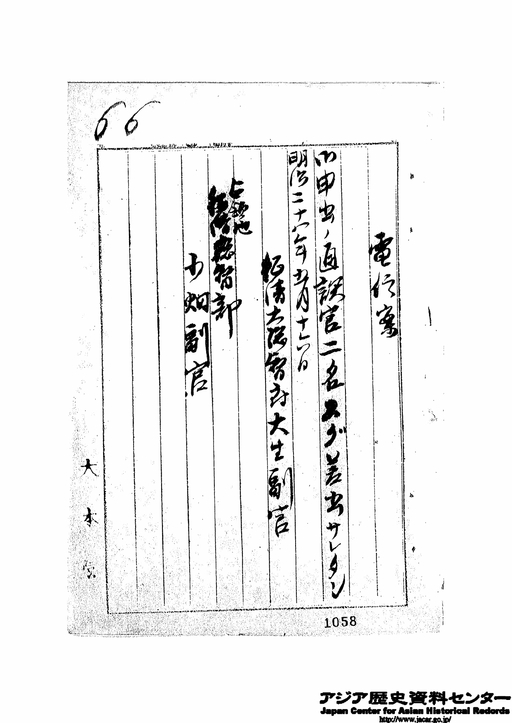 66
電信案
御申出ノ通訳官二名スグ差出サレタシ
明治二十八年五月十六日
征清大総督府大生副官
占領地
総督部
小畑副官
大本営
1058
アジア歴史資料センター
Japan Center for Asian Historical Records
http://www.jacar.go.jp/